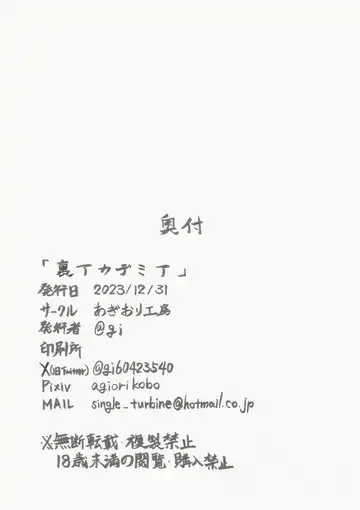 奥付
「裏アカデミア」
発行日 2023/12/31
サークル あぎおり工房
発行者 @gi
印刷所
X(旧Twitter) @gi60423540
Pixiv agiorikobo
MAIL single_turbine@hotmail.co.jp
※無断転載・複製禁止
18歳未満の閲覧・購入禁止